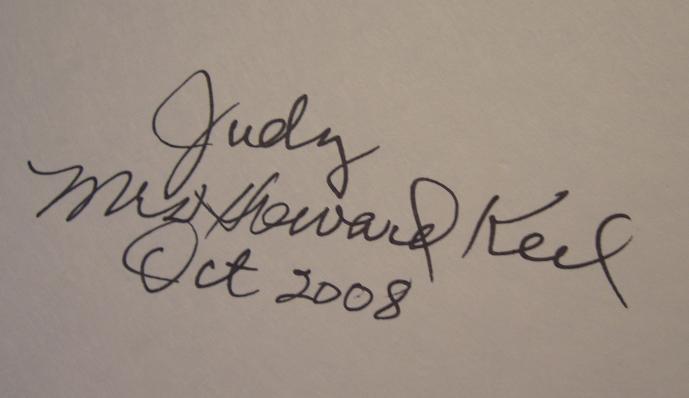 Judy
Mrs Howard Keel
Oct 2008